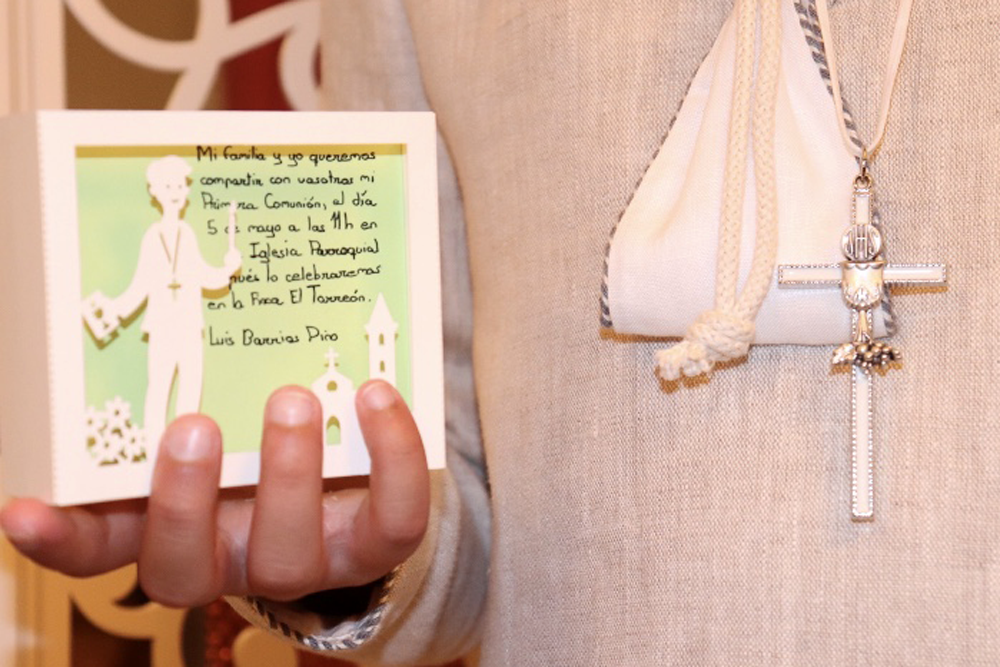 Mi familia y yo queremos
compartir con vosotros mi
Primera Comunión, el día
5 de mayo a las 11 h en
Iglesia Parroquial
pués lo celebraremos
en la Finca El Torreón.
Luis Barrios Pino
IHS